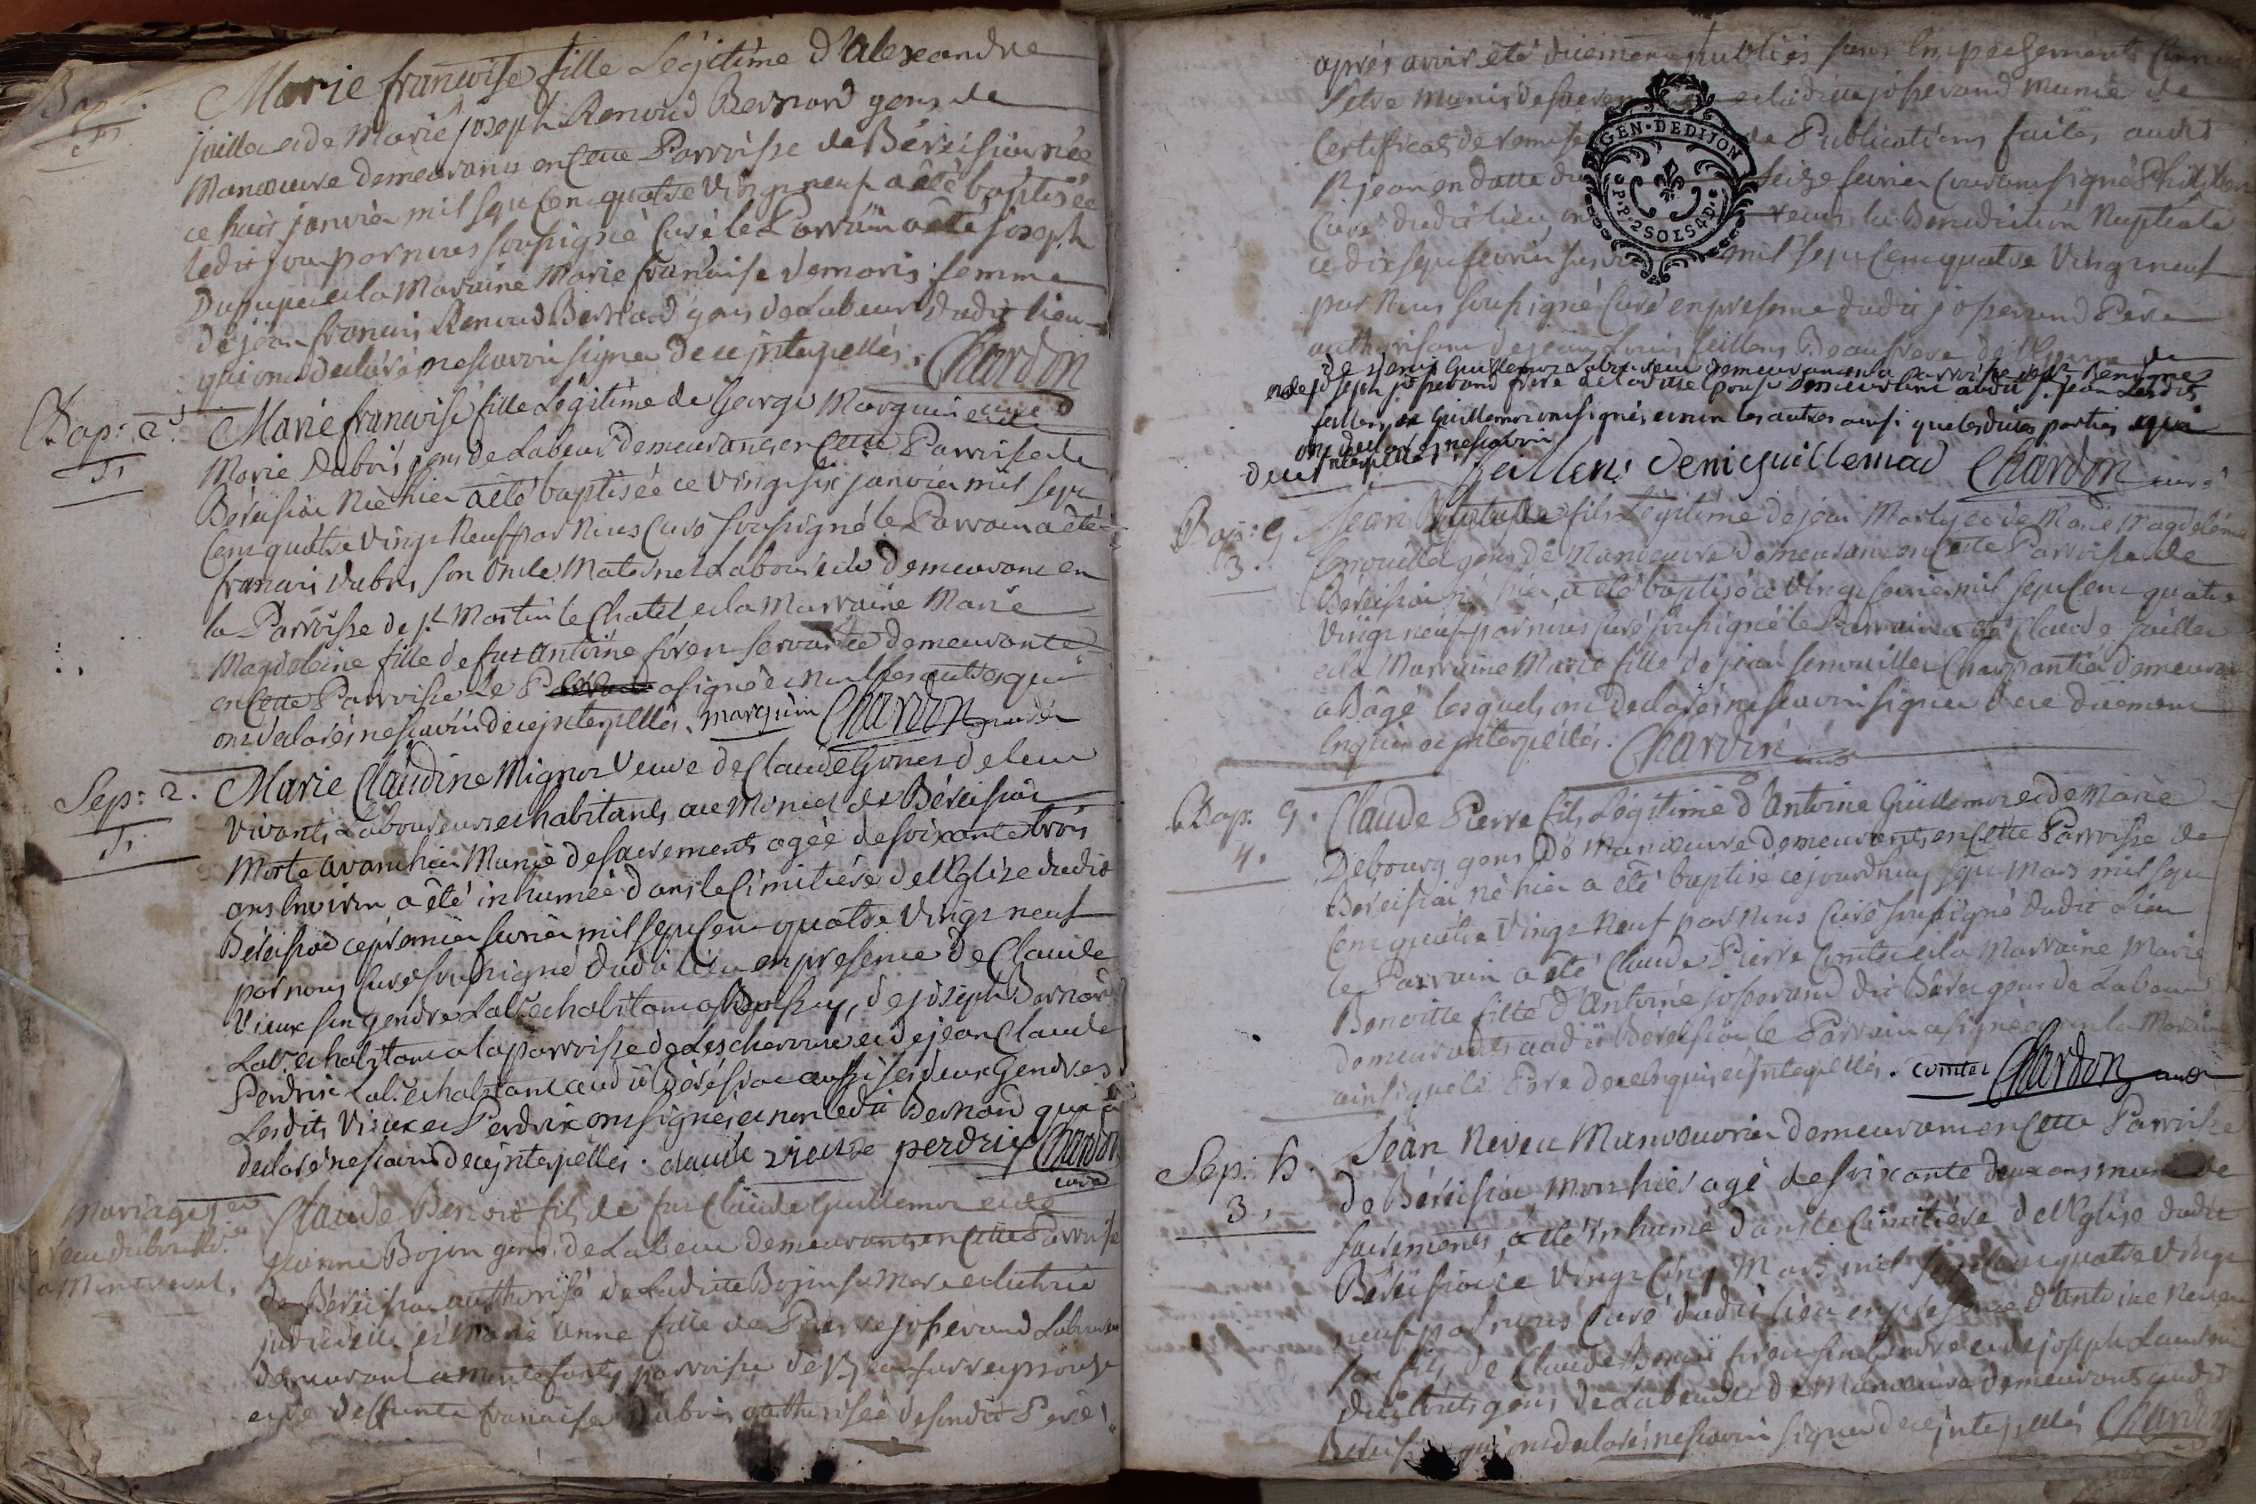 Bap:
1
Marie francoise fille Légitime d'alexandre
juilla et de Marie joseph Renoud Bernard gens de
Manoeuvre demeurants en cette Parroisse de Béréisia née
ce huit janvier mil sept Cent quatre Vingt neuf a été baptisée
ledit jour par nous soussigné Curé le Parrain a été joseph
et la Marraine Marie francoise femme
de jean francois Renoud Bernard gens de Labeur dudit lieu
qui ont déclaré ne scavoir signer de ce jnterpellés. Chardon
Bap: 2.
Marie francoise fille Légitime de George Marguin et de
Marie Dubois gens de Labeur demeurants en cette Parroisse de
Béréisia Née hier a été baptisée ce Vingt six janvier mil sept
Cent quatre Vingt Neuf par Nous Curé soussigné le Parrain a été
francois dubois son Oncle Maternel Laboureur demeurant en
la Parroisse de st Martin le Chatel et la Marraine Marie
Magdeleine fille de fut Antoine servante demeurante
en Cette Parroisse le P a signé et Non les autres qui
ont déclarés ne scavoir de ce jnterpellés. marguin Chardon curé
Sep: 2.
Marie Claudine Mignot Veuve de Claude Gonet de leur
Vivants Laboureurs et habitants au de Béréisia
Morte avant hier Munie de sacrements agée de soixante trois
ans Environ a été inhumée dans le Cimitière de l'Eglize dudit
Béréisia ce premier fevrier mil sept Cent quatre Vingt neuf
par nous Curé soussigné dudit lieu en presence de Claude
Vieux son gendre Labr et habitant a de joseph Bernard
Labr et habitant a la parroisse de Lescheroux et de jean Claude
Perdrix Labr et habitant audit Béréisia aussi ses deux Gendres
Lesdits Vieux et Perdrix ont signés et non ledit Bernard qui a
declaré ne scavoir de ce jnterpellés. claude vieux perdrix Chardon
curé
Mariage
Claude Benoit fils de fut Claude Guillemot et de
Bojon gens de Labeur demeurants en Cette Parroisse
de Béréisia authorisé de Ladite Bojon sa Mere et tutrice
et Marie Anne fille de Pierre josserand Laboureur
demeurant a parroisse de st jean sur reyssouze
et de deffunte francoise dubois authorisée de sondit Père
après avoir été duement publiés sans Empechement
GEN·DE DIJON
2 SOLS 4 D
Certificat de remise de Publications faites audit
st jean en datte du seize fevrier Courant signé
Curé dudit lieu, ont recus la Benediction Nuptiale
ce dix sept fevrier mil sept Cent quatre Vingt neuf
par Nous soussigné Curé en presence dudit josserand Père
authorisant de jean Louis Beaufrere de l'Epoux
de denis Guillemot Laboureur demeurant en la parroisse de
et de joseph josserand frere de Ladite Epouse demeurant audit st jean Lesdits
et Guillemot ont signés et non les autres aussi que lesdites parties qui
ont declarés ne scavoir
de ce jnterpellés. denis guillemot Chardon curé
Bap: g.
3.
Jean fils Légitime de jean Marty et de Marie Magdeleine
gens de Manoeuvre demeurants en Cette Parroisse de
Béréisia né hier, a été baptisé ce Vingt fevrier mil sept Cent quatre
Vingt neuf par nous Curé soussigné le Parrain a été Claude
et la Marraine Marie fille de jean Charpentier demeurant
a Bâgé lesquels ont déclarés ne scavoir signer de ce duement
Enquis et jnterpellés. Chardon curé
Bap: g.
4.
Claude Pierre fils Légitime d'Antoine Guillemot et de Marie
Debourg gens de Manoeuvre demeurants en Cette Parroisse de
Béréisia né hier a été baptisé ce jourd'huy sept Mars mil sept
Cent quatre Vingt Neuf par Nous Curé soussigné dudit Lieu
le Parrain a été Claude Pierre Comtet et la Marraine Marie
Benoitte fille d'Antoine josserand dit gens de Labeur
demeurants audit Béréisia le Parrain a signé et non la Marraine
ainsi que le Père de ce Enquis et jnterpellés. comtet Chardon curé
Sep: h.
3.
Jean Neveu Manoeuvrier demeurant en Cette Parroisse
de Béréisia Mort hier agé de soixante deux ans muni de
sacrements, a été inhumé dans le Cimitière de l'Eglize dudit
Béréisia ce Vingt Cinq Mars mil sept Cent quatre Vingt
neuf par nous Curé dudit lieu en presence d'Antoine Neveu
son fils de Claude son Gendre et de joseph
gens de Labeur et de Manoeuvre demeurants audit
Béréisia qui ont declarés ne scavoir signer de ce jnterpellés Chardon